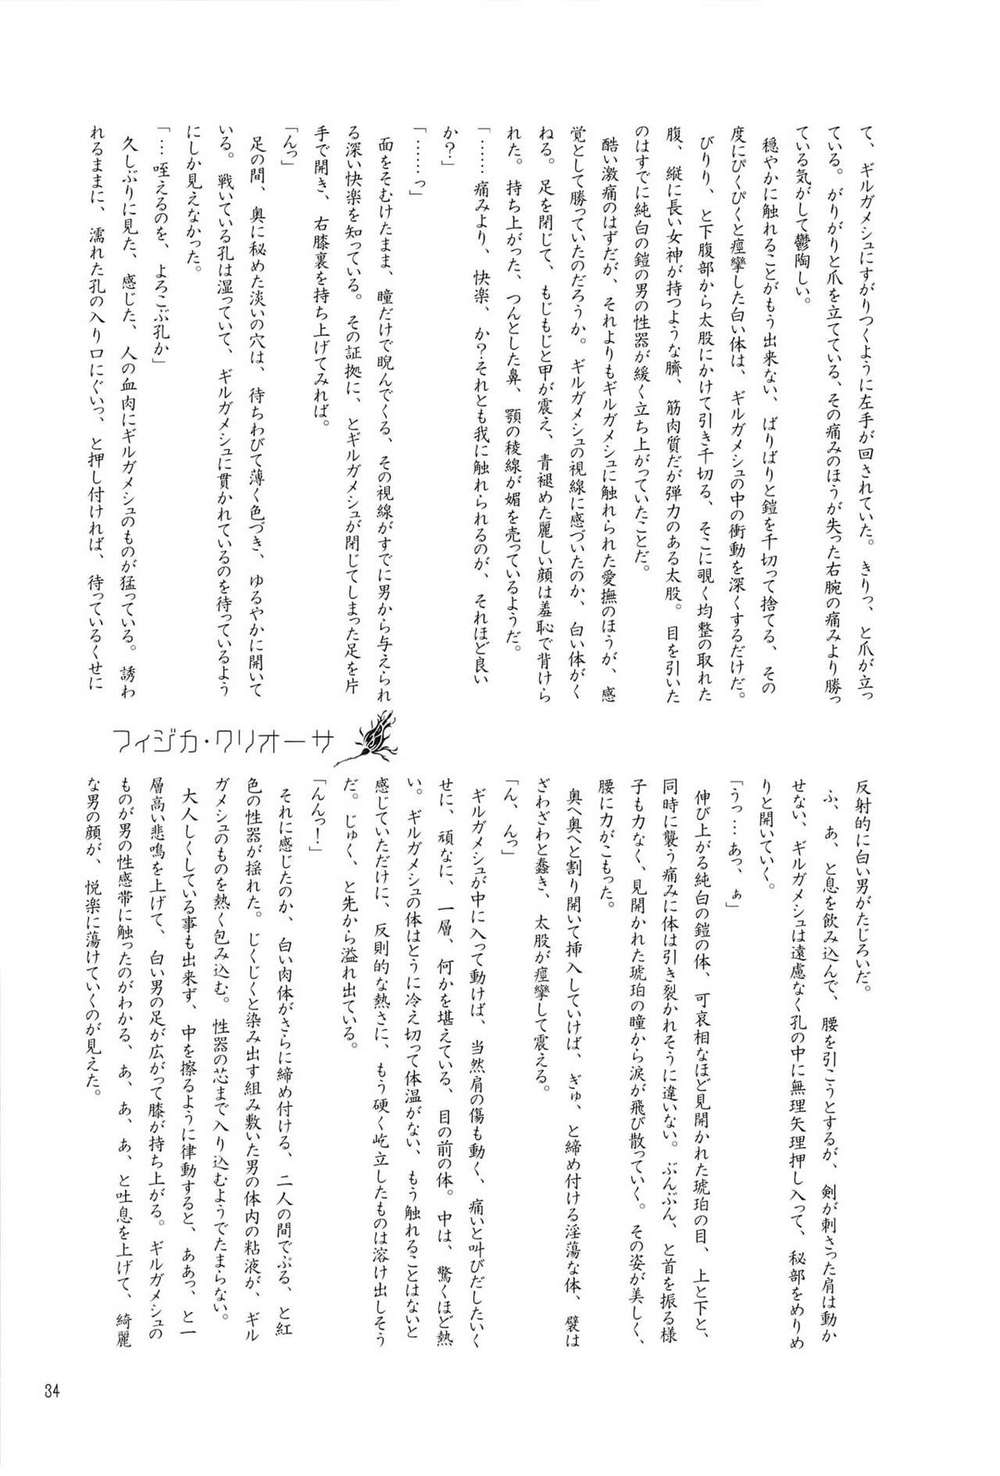 て、ギルガメシュにすがりつくように左手が回されていた。きりっ、と爪が立っ
ている。がりがりと爪を立てている、その痛みのほうが失った右腕の痛みより勝っ
ている気がして鬱陶しい。
穏やかに触れることがもう出来ない、ばりばりと鎧を千切って捨てる、その
度にぴくぴくと痙攣した白い体は、ギルガメシュの中の衝動を深くするだけだ。
びりり、と下腹部から太股にかけて引き千切る、そこに覗く均整の取れた
腹、縦に長い女神が持つような臍、筋肉質だが弾力のある太股。目を引いた
のはすでに純白の鎧の男の性器が緩く立ち上がっていたことだ。
酷い激痛のはずだが、それよりもギルガメシュに触れられた愛撫のほうが、感
覚として勝っていたのだろうか。ギルガメシュの視線に感づいたのか、白い体がく
ねる。足を閉じて、もじもじと甲が震え、青褪めた麗しい顔は羞恥で背けら
れた。持ち上がった、つんとした鼻、顎の稜線が媚を売っているようだ。
「……痛みより、快楽、か？それとも我に触れられるのが、それほど良い
か？」
「……っ」
面をそむけたまま、瞳だけで睨んでくる、その視線がすでに男から与えられ
る深い快楽を知っている。その証拠に、とギルガメシュが閉じてしまった足を片
手で開き、右膝裏を持ち上げてみれば。
「んっ」
足の間、奥に秘めた淡いの穴は、待ちわびて薄く色づき、ゆるやかに開いて
いる。戦いている孔は湿っていて、ギルガメシュに貫かれているのを待っているよう
にしか見えなかった。
「…咥えるのを、よろこぶ孔か」
久しぶりに見た、感じた、人の血肉にギルガメシュのものが猛っている。誘わ
れるままに、濡れた孔の入り口にぐいっ、と押し付ければ、待っているくせに
フィジカ・クリオーサ
反射的に白い男がたじろいだ。
ふ、あ、と息を飲み込んで、腰を引こうとするが、剣が刺さった肩は動か
せない、ギルガメシュは遠慮なく孔の中に無理矢理押し入って、秘部をめりめ
りと開いていく。
「うっ…あっ、ぁ」
伸び上がる純白の鎧の体、可哀相なほど見開かれた琥珀の目、上と下と、
同時に襲う痛みに体は引き裂かれそうに違いない。ぶんぶん、と首を振る様
子も力なく、見開かれた琥珀の瞳から涙が飛び散っていく。その姿が美しく、
腰に力がこもった。
奥へ奥へと割り開いて挿入していけば、ぎゅ、と締め付ける淫蕩な体、襞は
ざわざわと蠢き、太股が痙攣して震える。
「ん、んっ」
ギルガメシュが中に入って動けば、当然肩の傷も動く、痛いと叫びだしたいく
せに、頑なに、一層、何かを堪えている、目の前の体。中は、驚くほど熱
い。ギルガメシュの体はとうに冷え切って体温がない、もう触れることはないと
感じていただけに、反則的な熱さに、もう硬く屹立したものは溶け出しそう
だ。じゅく、と先から溢れ出ている。
「んんっ！」
それに感じたのか、白い肉体がさらに締め付ける、二人の間でぷる、と紅
色の性器が揺れた。じくじくと染み出す組み敷いた男の体内の粘液が、ギル
ガメシュのものを熱く包み込む。性器の芯まで入り込むようでたまらない。
大人しくしている事も出来ず、中を擦るように律動すると、ああっ、と一
層高い悲鳴を上げて、白い男の足が広がって膝が持ち上がる。ギルガメシュの
ものが男の性感帯に触ったのがわかる、あ、あ、あ、と吐息を上げて、綺麗
な男の顔が、悦楽に蕩けていくのが見えた。
34